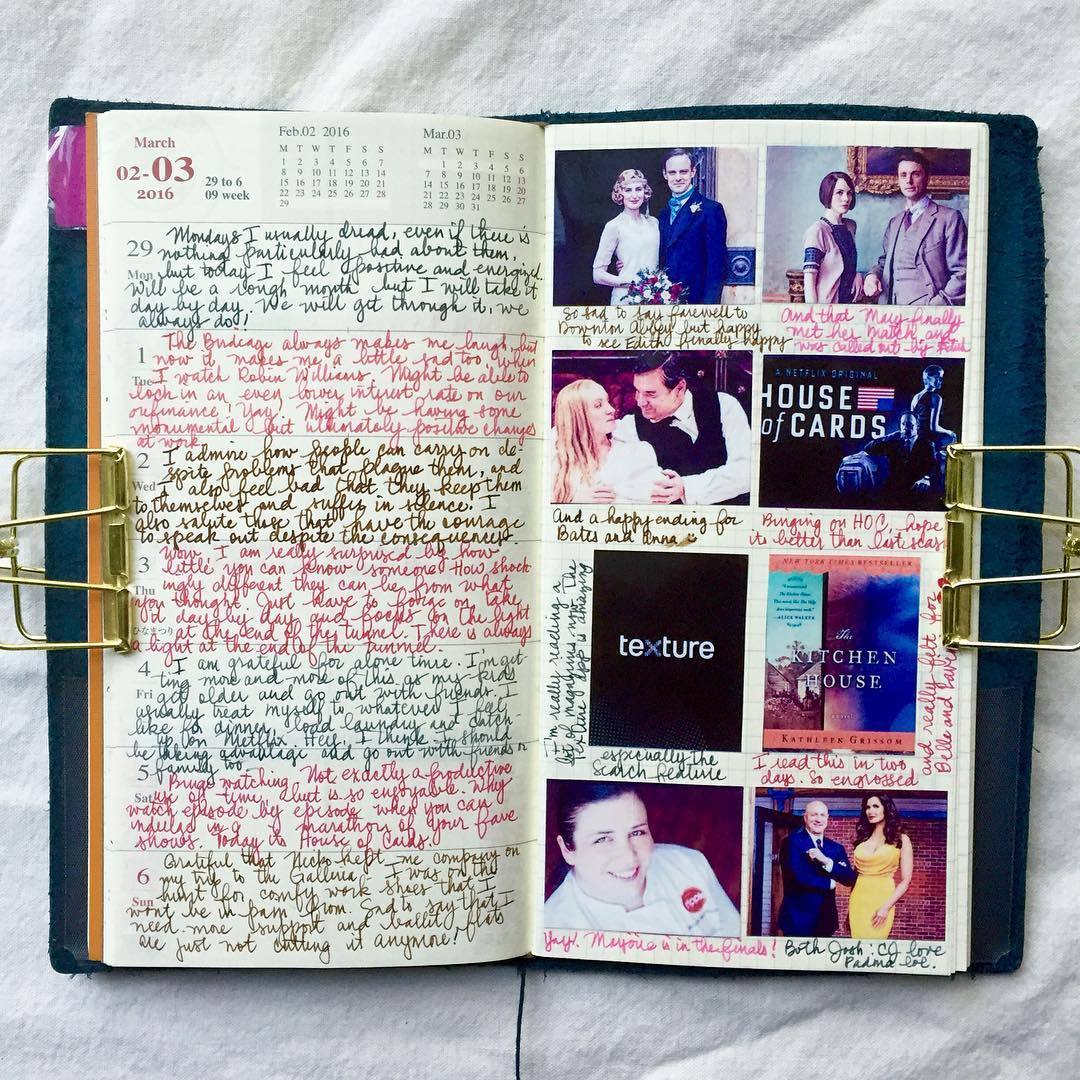 March
02-03
2016
29 to 6
09 week
Feb.02 2016
M T W T F S S
1 2 3 4 5 6 7
8 9 10 11 12 13 14
15 16 17 18 19 20 21
22 23 24 25 26 27 28
29
Mar.03
M T W T F S S
1 2 3 4 5 6
7 8 9 10 11 12 13
14 15 16 17 18 19 20
21 22 23 24 25 26 27
28 29 30 31
29
Mon
Mondays I usually dread, even if there is
nothing particularly bad about them,
but today I feel positive and energized.
Will be a rough month but I will take it
day by day. We will get through it, we
always do!
1
Tue
The Birdcage always makes me laugh, but
now it makes me a little sad too when
I watch Robin Williams. Might be able to
lock in an even lower interest rate on our
refinance! Yay! Might be having some
monumental but ultimately positive changes
at work.
2
Wed
I admire how people can carry on de-
spite problems that plague them, and
I also feel bad that they keep them
to themselves and suffer in silence. I
also salute those that have the courage
to speak out despite the consequences
3
Thu
ひなまつり
Wow, I am really surprised by how
little you can know someone! How shock-
ingly different they can be from what
you thought. Just have to forge on, take
it day by day and focus on the light
at the end of the tunnel. There is always
a light at the end of the tunnel.
4
Fri
I am grateful for alone time. I'm get-
ting more and more of this as my kids
get older and go out with friends. I
usually treat myself to whatever I feel
like for dinner, load laundry and catch-
up on Netflix. Hey! I think I should
be taking advantage and go out with friends or
family too.
5
Sat
Binge watching. Not exactly a productive
use of time, but is so enjoyable. Why
watch episode by episode when you can
indulge in a marathon of your fave
shows. Today it's House of Cards.
6
Sun
Grateful that Necko kept me company on
my trip to the Galleria. I was on the
hunt for comfy work shoes that I
wont be in pain from. Sad to say that I
need more support and ballet flats
are just not cutting it anymore!
So sad to say farewell to
Downton Abbey but happy
to see Edith finally happy
And that Mary finally
met her match and
was called out by Edith
And a happy ending for
Bates and Anna
A NETFLIX ORIGINAL
HOUSE
of CARDS
Binging on HOC, hope
its better than last season
I'm really reading a
lot of magazines now. The
Texture app is amazing
texture
especially the
search feature
NEW YORK TIMES BESTSELLER
—ALICE WALKER
The
KITCHEN
HOUSE
a novel
KATHLEEN GRISSOM
I read this in two
days. So engrossed
and really felt for
Belle and
Yay! Marjorie is in the finals!
Both Josh & CJ love
Padma lol.